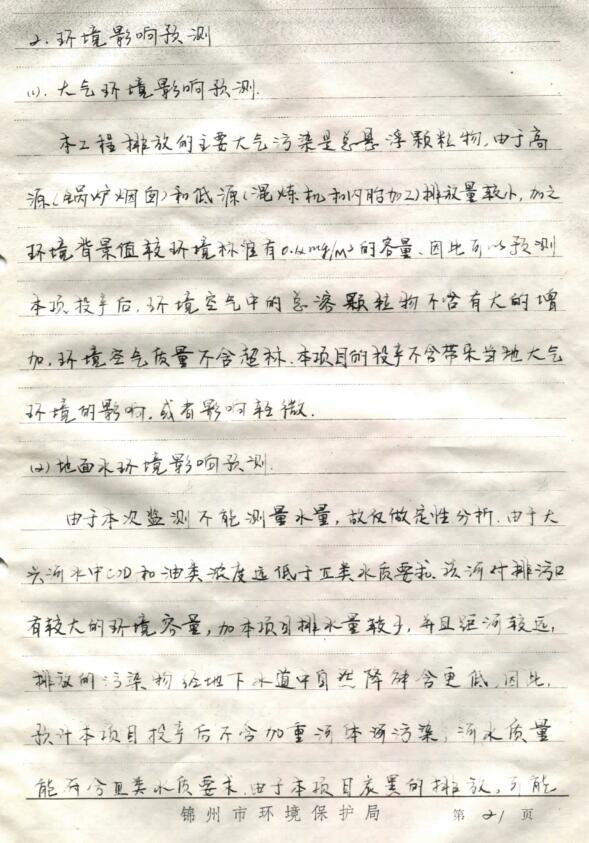 2. 环境影响预测
(1). 大气环境影响预测.
本工程排放的主要大气污染是总悬浮颗粒物,由于高
源(锅炉烟囱)和低源(混炼机和内胎加工)排放量较小,加之
环境背景值较环境标准有 mg/m³的容量、因此可以预测
本项投产后,环境空气中的总浮颗粒物不含有大的增
加,环境空气质量不含超标.本项目的投产不含带来当地大气
环境的影响,或者影响轻微.
(2)地面水环境影响预测.
由于本次监测不能测量水量,故仅做定性分析.由于大
河水中COD和油类浓度远低于Ⅲ类水质要求.该河对排污口
有较大的环境容量,加本项目排水量较小,并且距河较远,
排放的污染物经地下水道中自然降解含更低,因此,
预计本项目投产后不含加重河体污染,河水质量
能符合Ⅲ类水质要求.由于本项目炭黑的排放,可能
锦州市环境保护局 第 21 页